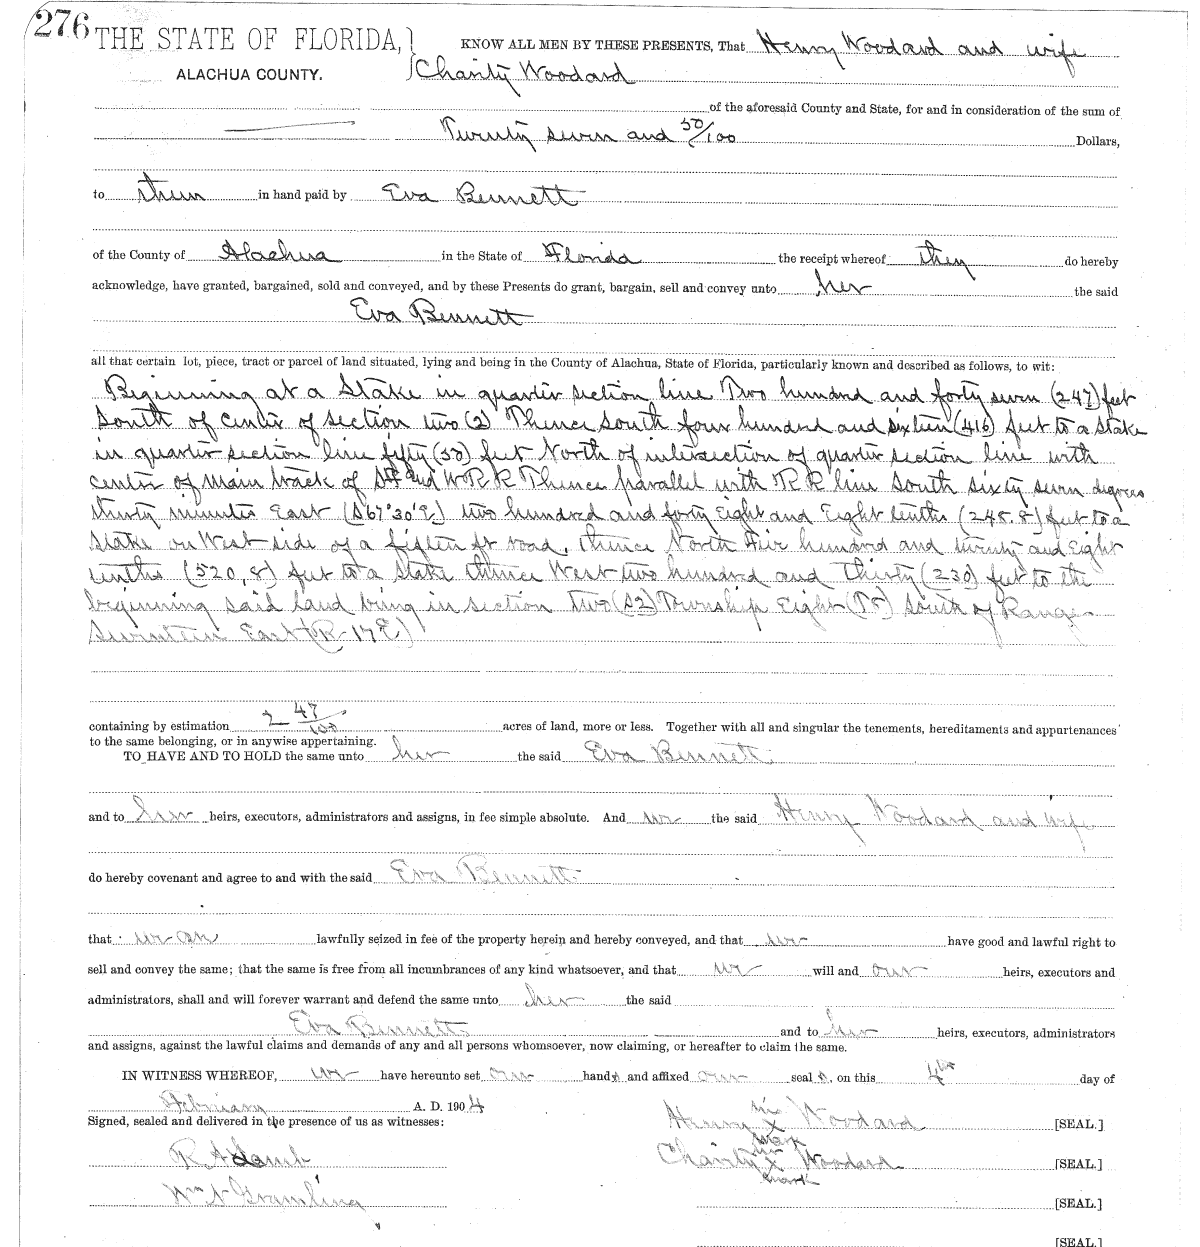 276
THE STATE OF FLORIDA,} KNOW ALL MEN BY THESE PRESENTS, That Henry Woodard and wife
ALACHUA COUNTY. Charity Woodard
of the aforesaid County and State, for and in consideration of the sum of
Twenty seven and 50/100 Dollars,
to them in hand paid by Eva Bennett
of the County of Alachua in the State of Florida the receipt whereof they do hereby
acknowledge, have granted, bargained, sold and conveyed, and by these Presents do grant, bargain, sell and convey unto her the said
Eva Bennett
all that certain lot, piece, tract or parcel of land situated, lying and being in the County of Alachua, State of Florida, particularly known and described as follows, to wit:
Beginning at a Stake in quarter section line Two hundred and forty seven (247) feet
South of Center of section two (2) Thence South four hundred and sixteen (416) feet to a Stake
in quarter section line fifty (50) feet North of intersection of quarter section line with
center of main track of and W R R Thence parallel with R R line South sixty seven degrees
thirty minutes East (S 67°30'E.) two hundred and forty Eight and Eight tenths (248.8) feet to a
Stake on West side of a fifteen ft road, thence North Five hundred and twenty and Eight
tenths (520,8) feet to a Stake thence West two hundred and Thirty (230) feet to the
beginning said land being in section Two (S2) Township Eight (T8) South of Range
Seventeen East (R-17E)
containing by estimation 2 47/100 acres of land, more or less. Together with all and singular the tenements, hereditaments and appurtenances
to the same belonging, or in anywise appertaining.
TO HAVE AND TO HOLD the same unto her the said Eva Bennett
and to her heirs, executors, administrators and assigns, in fee simple absolute. And we the said Henry Woodard and wife
do hereby covenant and agree to and with the said Eva Bennett
that we are lawfully seized in fee of the property herein and hereby conveyed, and that we have good and lawful right to
sell and convey the same; that the same is free from all incumbrances of any kind whatsoever, and that we will and our heirs, executors and
administrators, shall and will forever warrant and defend the same unto her the said
Eva Bennett and to her heirs, executors, administrators
and assigns, against the lawful claims and demands of any and all persons whomsoever, now claiming, or hereafter to claim the same.
IN WITNESS WHEREOF, we have hereunto set our hands and affixed our seals, on this 4th day of
February A. D. 1904
Signed, sealed and delivered in the presence of us as witnesses:
Henry his x mark Woodard [SEAL.]
R A Lamb Charity her x mark Woodard [SEAL.]
Wm N Gramling [SEAL.]
[SEAL.]